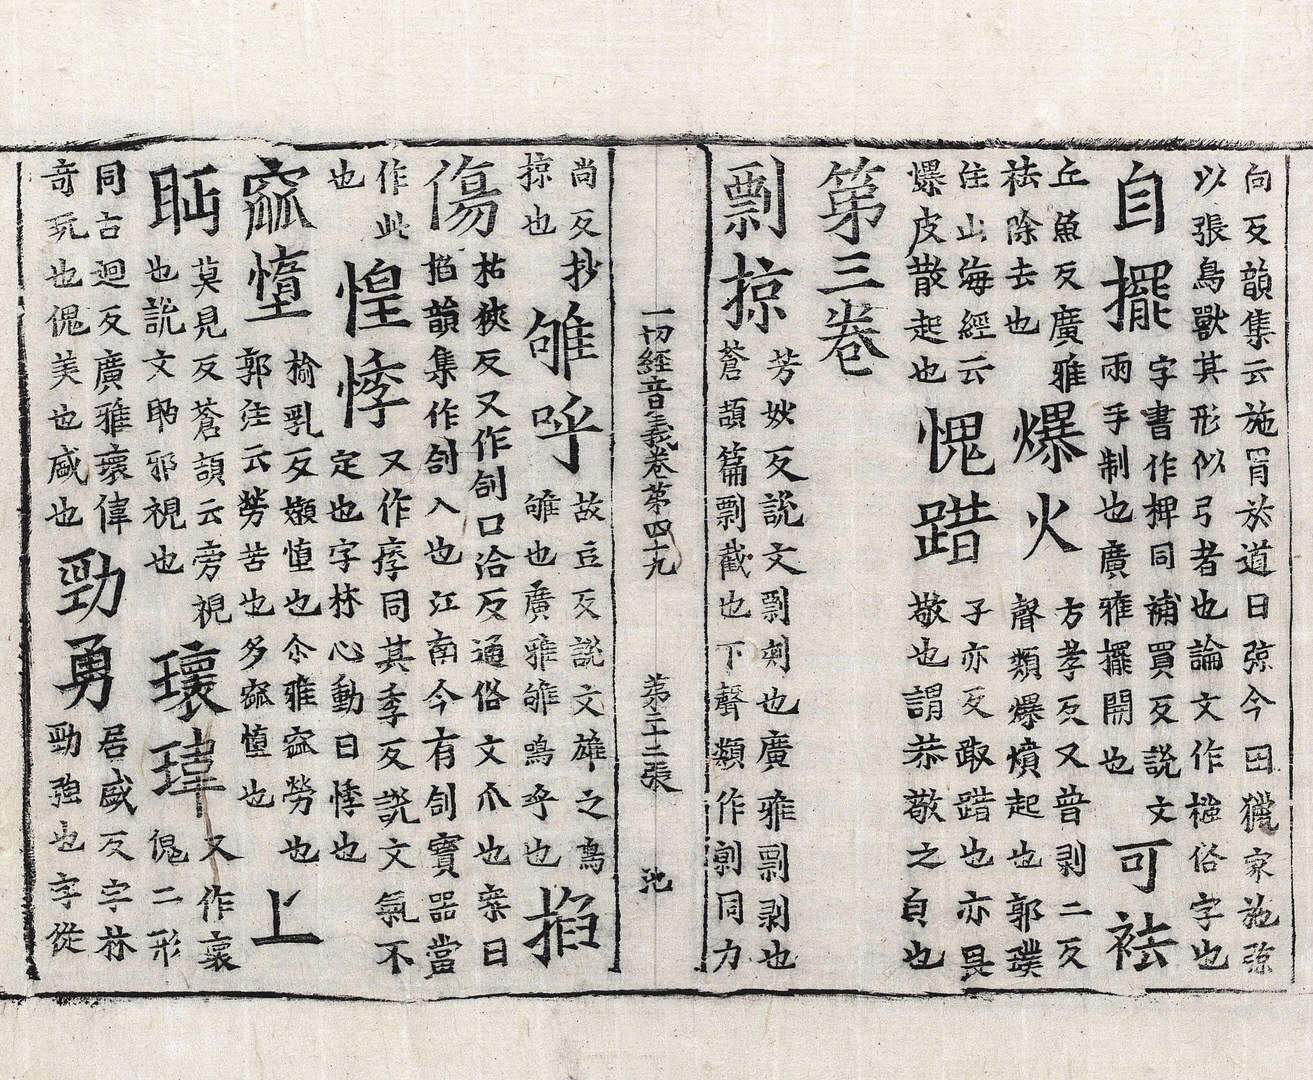 向反韻集云施罥於道曰弶今田獵家施弶
以張鳥獸其形似弓者也論文作摾俗字也
自擺
字書作捭同補買反說文
兩手制也廣雅擺開也
可袪
丘魚反廣雅
袪除去也
爆火
方孝反又普剥二反
聲類爆熕起也郭璞
注山海經云
爆皮散起也
愧踖
子亦反踧踖也亦畏
敬也謂恭敬之皃也
第三卷
剽掠
芳妙反說文剽刾也廣雅剽剥也
蒼頡篇剽截也下聲類作剠同力
一切經音義卷第四十九 第二十二張 池
尚反抄
掠也
雊呼
故豆反說文雄之鳥
雊也廣雅雊鳴呼也
掐
傷
枯狹反又作㓣口洽反通俗文爪也案曰
掐韻集作㓣入也江南今有㓣寶器當
作此
也
惶悸
又作痵同其季反說文氣不
定也字林心動曰悸也
窳惰
榆乳反嬾惰也尒雅窳勞也
郭注云勞苦也多窳惰也
上
眄
莫見反蒼頡云旁視
也說文眄邪視也
瓌瑋
又作褱
傀二形
同古迴反廣雅瓌偉
奇玩也傀美也盛也
勁勇
居盛反字林
勁強也字從